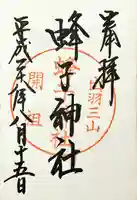 奉拝
出羽三山
蜂子神社
開祖
平成二十年八月十五日